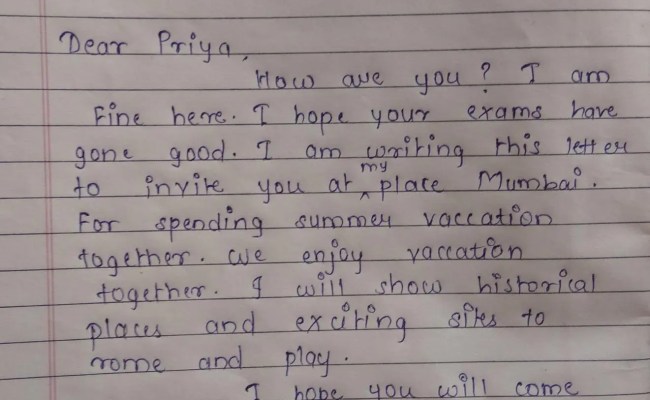 Dear Priya,
How are you? I am
Fine here. I hope your exams have
gone good. I am writing this letter
to invite you at my place Mumbai.
For spending summer vaccation
together. We enjoy vaccation
together. I will show historical
places and exciting sites to
rome and play.
I hope you will come